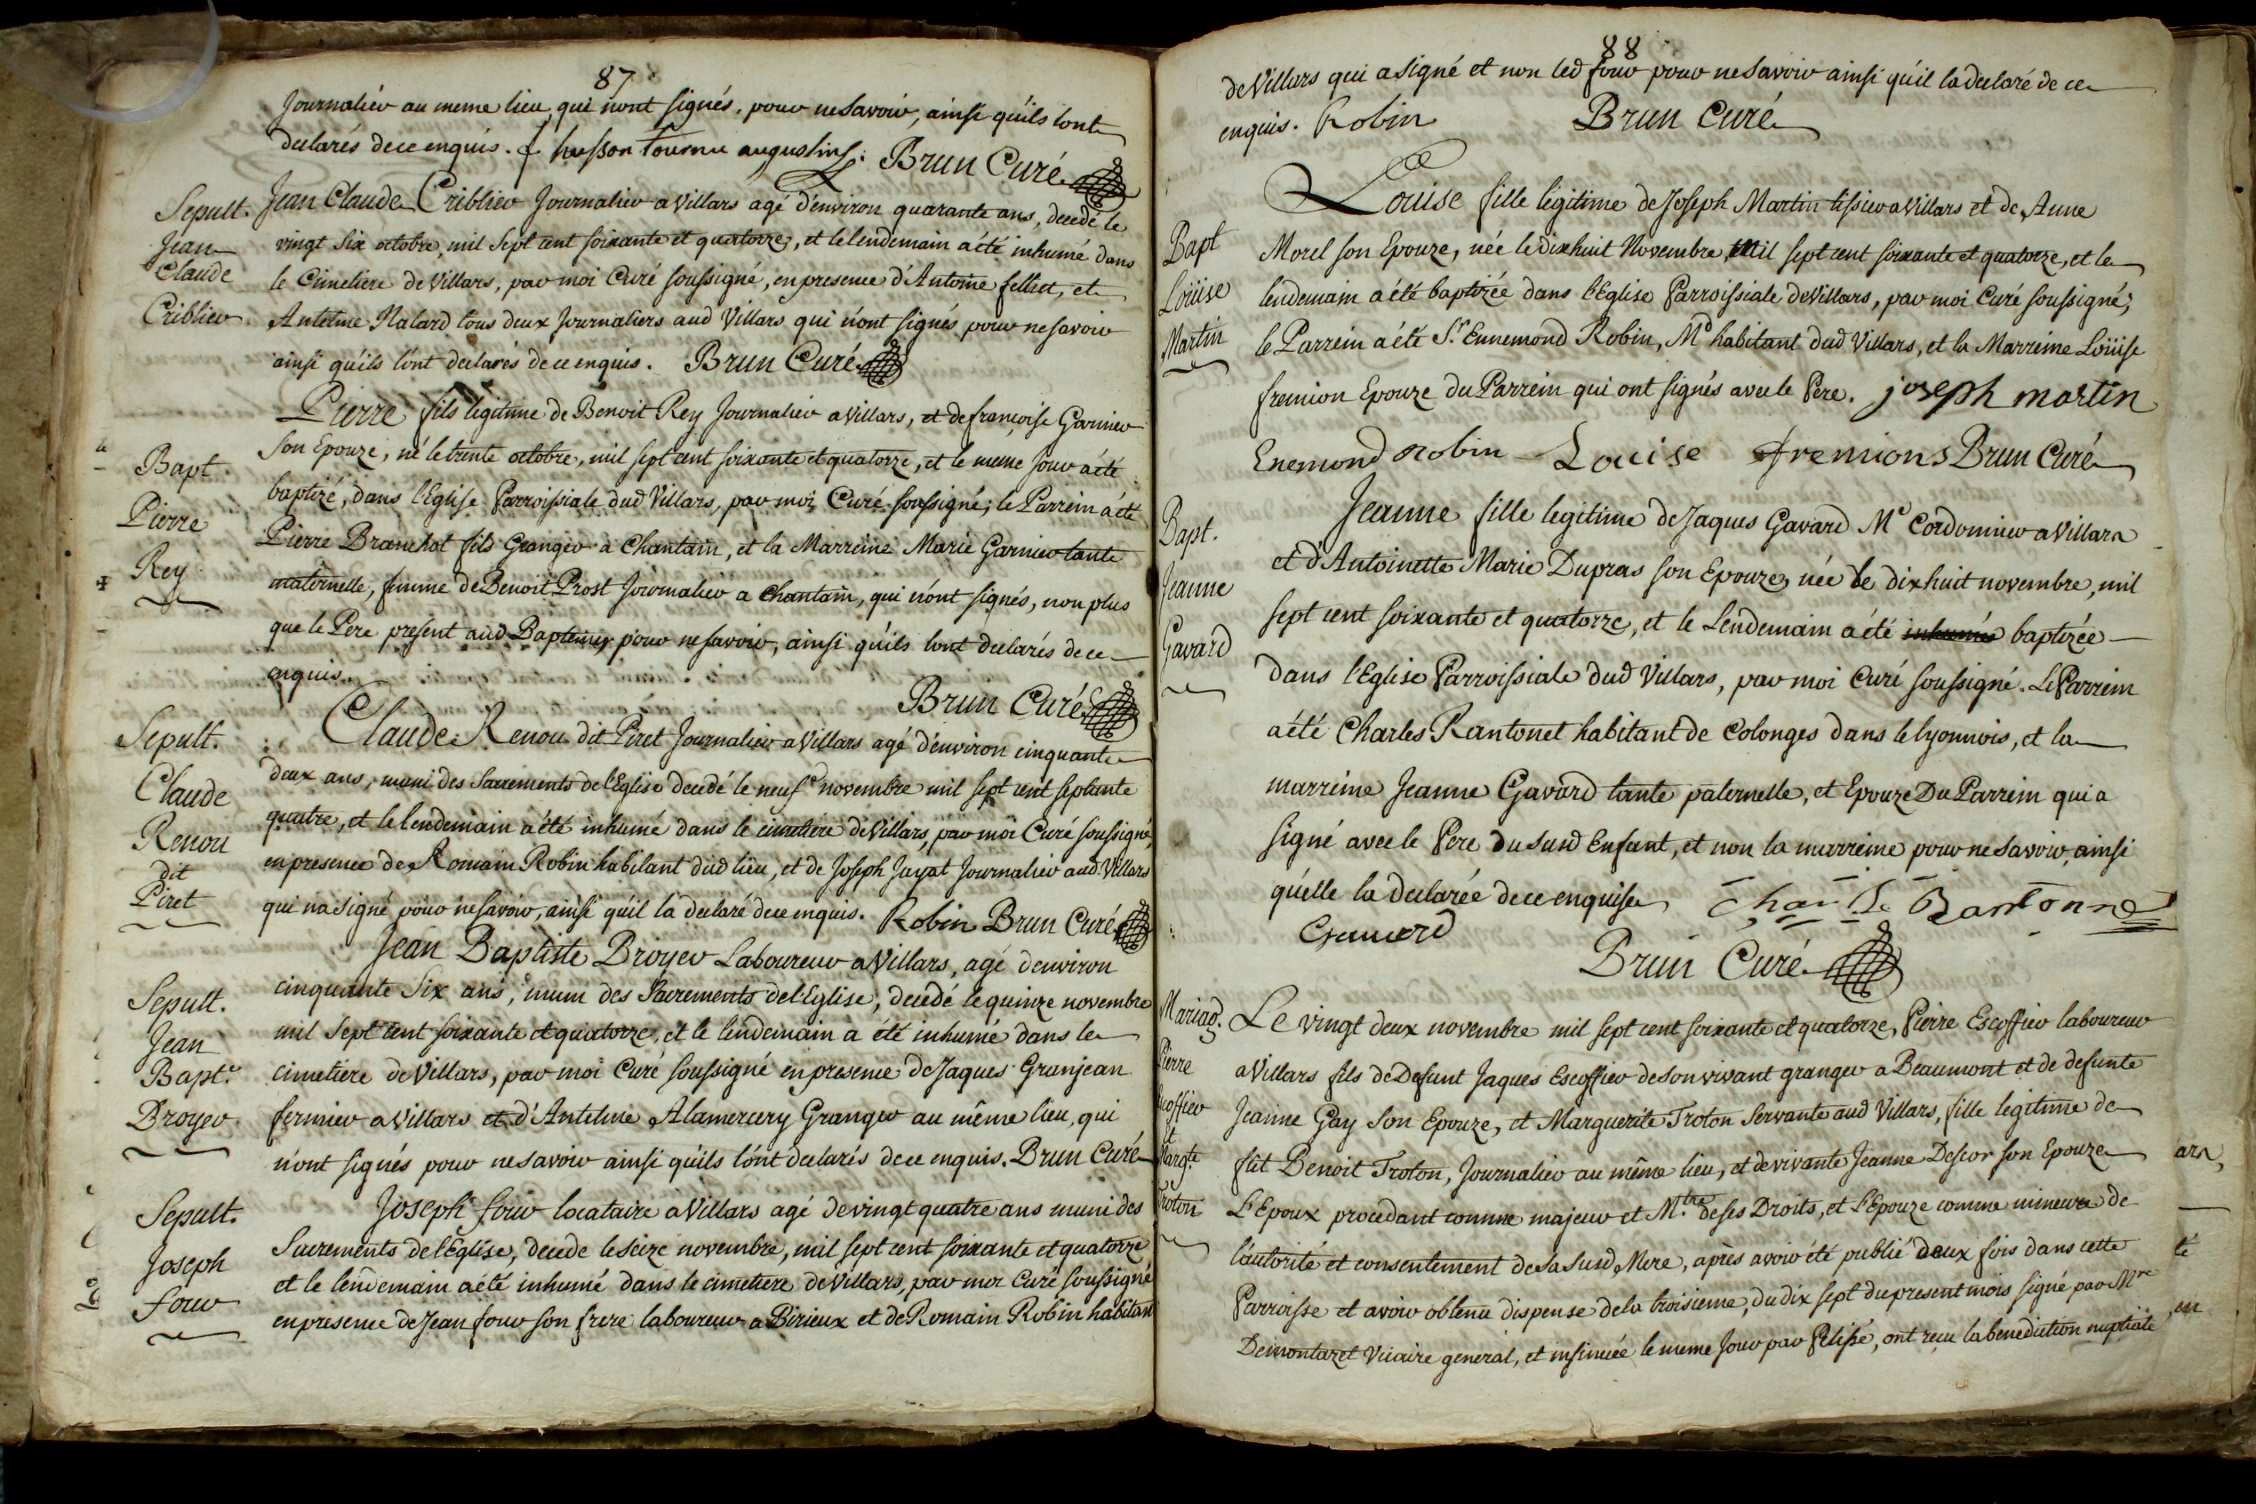 87
Journalier au meme lieu qui n'ont signés, pour ne Savoir, ainsi qu'ils l'ont
declarés de ce enquis. f. husson Tournu augustins. Brun Curé
Sepult.
Jean
Claude
Criblier
Jean Claude Criblier Journalier a Villars agé d'environ quarante ans, decedé le
vingt Six octobre, mil Sept cent soixante et quatorze, et le lendemain a été inhumé dans
le Cimetiere de Villars, par moi Curé soussigné, en presence d'Antoine felliet, et
Antelme Nalard tous deux Journaliers aud Villars qui n'ont signés pour ne savoir
ainsi qu'ils l'ont declarés de ce enquis. Brun Curé
Bapt.
Pierre
Rey
Pierre fils legitime de Benoit Rey Journalier a Villars, et de françoise Garnier
Son Epouze, né le trente octobre, mil sept cent soixante et quatorze, et le meme Jour a été
baptizé, dans l'Eglise Parroissiale dud Villars, par moi Curé soussigné; le Parrein a été
Pierre Branchot fils Granger a Chantain, et la Marreine Marie Garnier tante
maternelle, femme de Benoit Prost Journalier a Chantain, qui n'ont signés, non plus
que le Pere present aud Bapteme, pour ne savoir, ainsi qu'ils l'ont declarés de ce
enquis.
Brun Curé
Sepult.
Claude
Renou
dit
Piret
Claude Renou dit Piret Journalier a Villars agé d'environ cinquante
deux ans, muni des Sacrements de l'Eglise decedé le neuf novembre mil sept cent septante
quatre, et le lendemain a été inhumé dans le cimetiere de Villars, par moi Curé soussigné,
en presence de Romain Robin habitant dud lieu, et de Joseph Jayat Journalier aud Villars
qui n'a signé pour ne savoir, ainsi qu'il l'a declaré de ce enquis. Robin Brun Curé
Sepult.
Jean
Bapt.e
Broyer
Jean Baptiste Broyer Laboureur a Villars, agé d'environ
cinquante Six ans, muni des Sacrements de l'Eglise, decedé le quinze novembre
mil Sept cent soixante et quatorze, et le lendemain a été inhumé dans le
cimetiere de Villars, par moi Curé soussigné en presence de Jaques Granjean
fermier a Villars et d'Antelme Alamercery Granger au même lieu, qui
n'ont signés pour ne savoir ainsi qu'ils l'ont declarés de ce enquis. Brun Curé
Sepult.
Joseph
four
Joseph four locataire a Villars agé de vingt quatre ans muni des
Sacrements de l'Eglise, decede le seize novembre, mil sept cent soixante et quatorze
et le lendemain a été inhumé dans le cimetiere de Villars, par moi Curé soussigné
en presence de Jean four son frere laboureur a Birieux et de Romain Robin habitant
88
de Villars qui a signé et non led four pour ne savoir ainsi qu'il la declaré de ce
enquis. Robin Brun Curé
Bapt
Loüise
Martin
Louise fille legitime de Joseph Martin tissier a Villars et de Anne
Morel son Epouze, née le dixhuit Novembre, mil sept cent soixante et quatorze, et le
lendemain a été baptizée dans l'Eglise Parroissiale de Villars, par moi Curé soussigné;
le Parrein a été S.r Ennemond Robin, M.d habitant dud Villars, et la Marreine Loüise
fremion Epouze du Parrein qui ont signés avec le Pere. joseph martin
Enemond Robin Louise fremions Brun Curé
Bapt.
Jeanne
Gavard
Jeanne fille legitime de Jaques Gavard M.e Cordonnier a Villars
et d'Antoinette Marie Dupras son Epouze, née le dixhuit novembre, mil
sept cent soixante et quatorze, et le Lendemain a été inhumée baptizée
dans l'Eglise Parroissiale dud Villars, par moi Curé soussigné. Le Parrein
a été Charles Rantonet habitant de Colonges dans le lyonnois, et la
marreine Jeanne Gavard tante paternelle, et Epouze Du Parrein qui a
signé avec le Pere du susd Enfant, et non la marreine pour ne savoir, ainsi
qu'elle la declarée de ce enquise
Gavard
Brun Curé
Mariag.
Pierre
Escoffier
et
Marg.te
Troton
Le vingt deux novembre mil sept cent soixante et quatorze, Pierre Escoffier laboureur
a Villars fils de Defunt Jaques Escoffier de son vivant granger a Beaumont et de defunte
Jeanne Gay Son Epouze, et Marguerite Troton Servante aud Villars, fille legitime de
f.lt Benoit Troton, Journalier au même lieu, et de vivante Jeanne Descor son Epouze
L'Epoux procedant comme majeur et M.tre de ses Droits, et L'Epouze comme mineure de
l'autorité et consentement de sa susd Mere, après avoir été publié deux fois dans cette
Parroisse et avoir obtenu dispense de la troisieme, du dix sept du present mois signé par M.re
Demontazet Vicaire general, et insinuée le meme Jour par Pelissé, ont reçu la benediction nuptiale